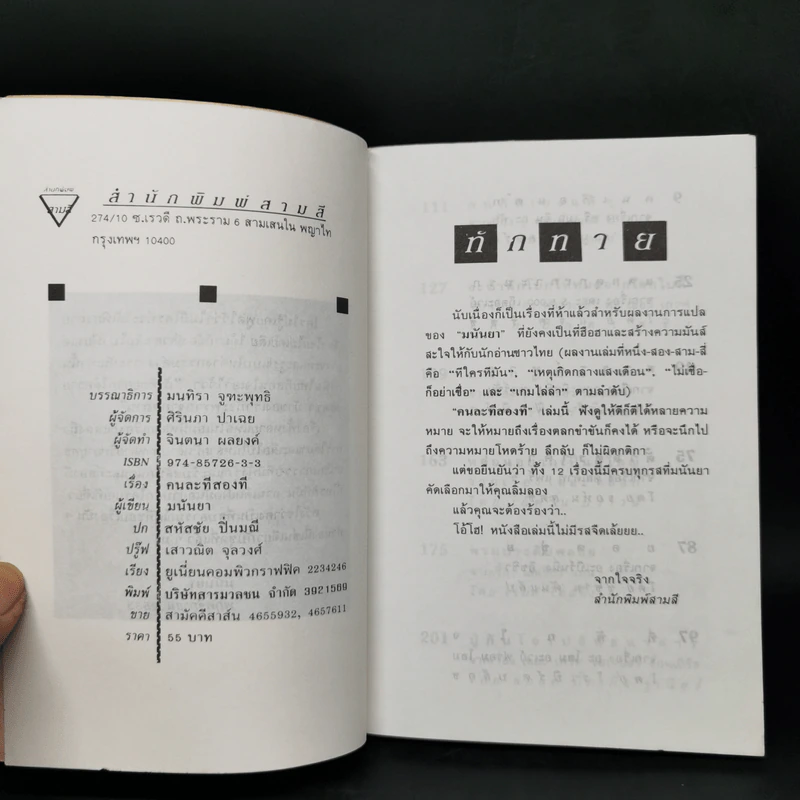 สำนักพิมพ์
สามสี
สำนักพิมพ์สามสี
274/10 ซ.เรวดี ถ.พระราม 6 สามเสนใน พญาไท
กรุงเทพฯ 10400
บรรณาธิการ มนทิรา จูฑะพุทธิ
ผู้จัดการ ศิรินภา ปาเฉย
ผู้จัดทำ จินตนา ผลยงค์
ISBN 974-85726-3-3
เรื่อง คนละทีสองที
ผู้เขียน มนันยา
ปก สหัสชัย ปิ่นมณี
ปรู๊ฟ เสาวณิต จุลวงศ์
เรียง ยูเนี่ยนคอมพิวกราฟฟิค 2234246
พิมพ์ บริษัทสารมวลชน จำกัด 3921569
ขาย สามัคคีสาส์น 4655932, 4657611
ราคา 55 บาท
ทักทาย
นับเนื่องก็เป็นเรื่องที่ห้าแล้วสำหรับผลงานการแปล
ของ "มนันยา" ที่ยังคงเป็นที่ฮือฮาและสร้างความมันส์
สะใจให้กับนักอ่านชาวไทย (ผลงานเล่มที่หนึ่ง-สอง-สาม-สี่
คือ "ทีใครทีมัน", "เหตุเกิดกลางแสงเดือน", "ไม่เชื่อ-
ก็อย่าเชื่อ" และ "เกมไล่ล่า" ตามลำดับ)
"คนละทีสองที" เล่มนี้ ฟังดูให้ดีก็ตีได้หลายความ
หมาย จะให้หมายถึงเรื่องตลกขำขันก็คงได้ หรือจะนึกไป
ถึงความหมายโหดร้าย ลึกลับ ก็ไม่ผิดกติกา
แต่ขอยืนยันว่า ทั้ง 12 เรื่องนี้มีครบทุกรสที่มนันยา
คัดเลือกมาให้คุณลิ้มลอง
แล้วคุณจะต้องร้องว่า..
โอ้โฮ! หนังสือเล่มนี้ไม่มีรสจืดเล้ยยย..
จากใจจริง
สำนักพิมพ์สามสี